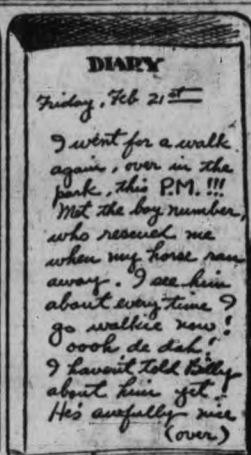 DIARY
Friday, Feb 21st
I went for a walk
again, over in the
park, this P.M. !!!
Met the boy number,
who rescued me
when my horse ran
away. I see him
about every time I
go walkie now!
oooh de dah!
I haven't told Billy
about him yet.
He's awfully nice
(over)